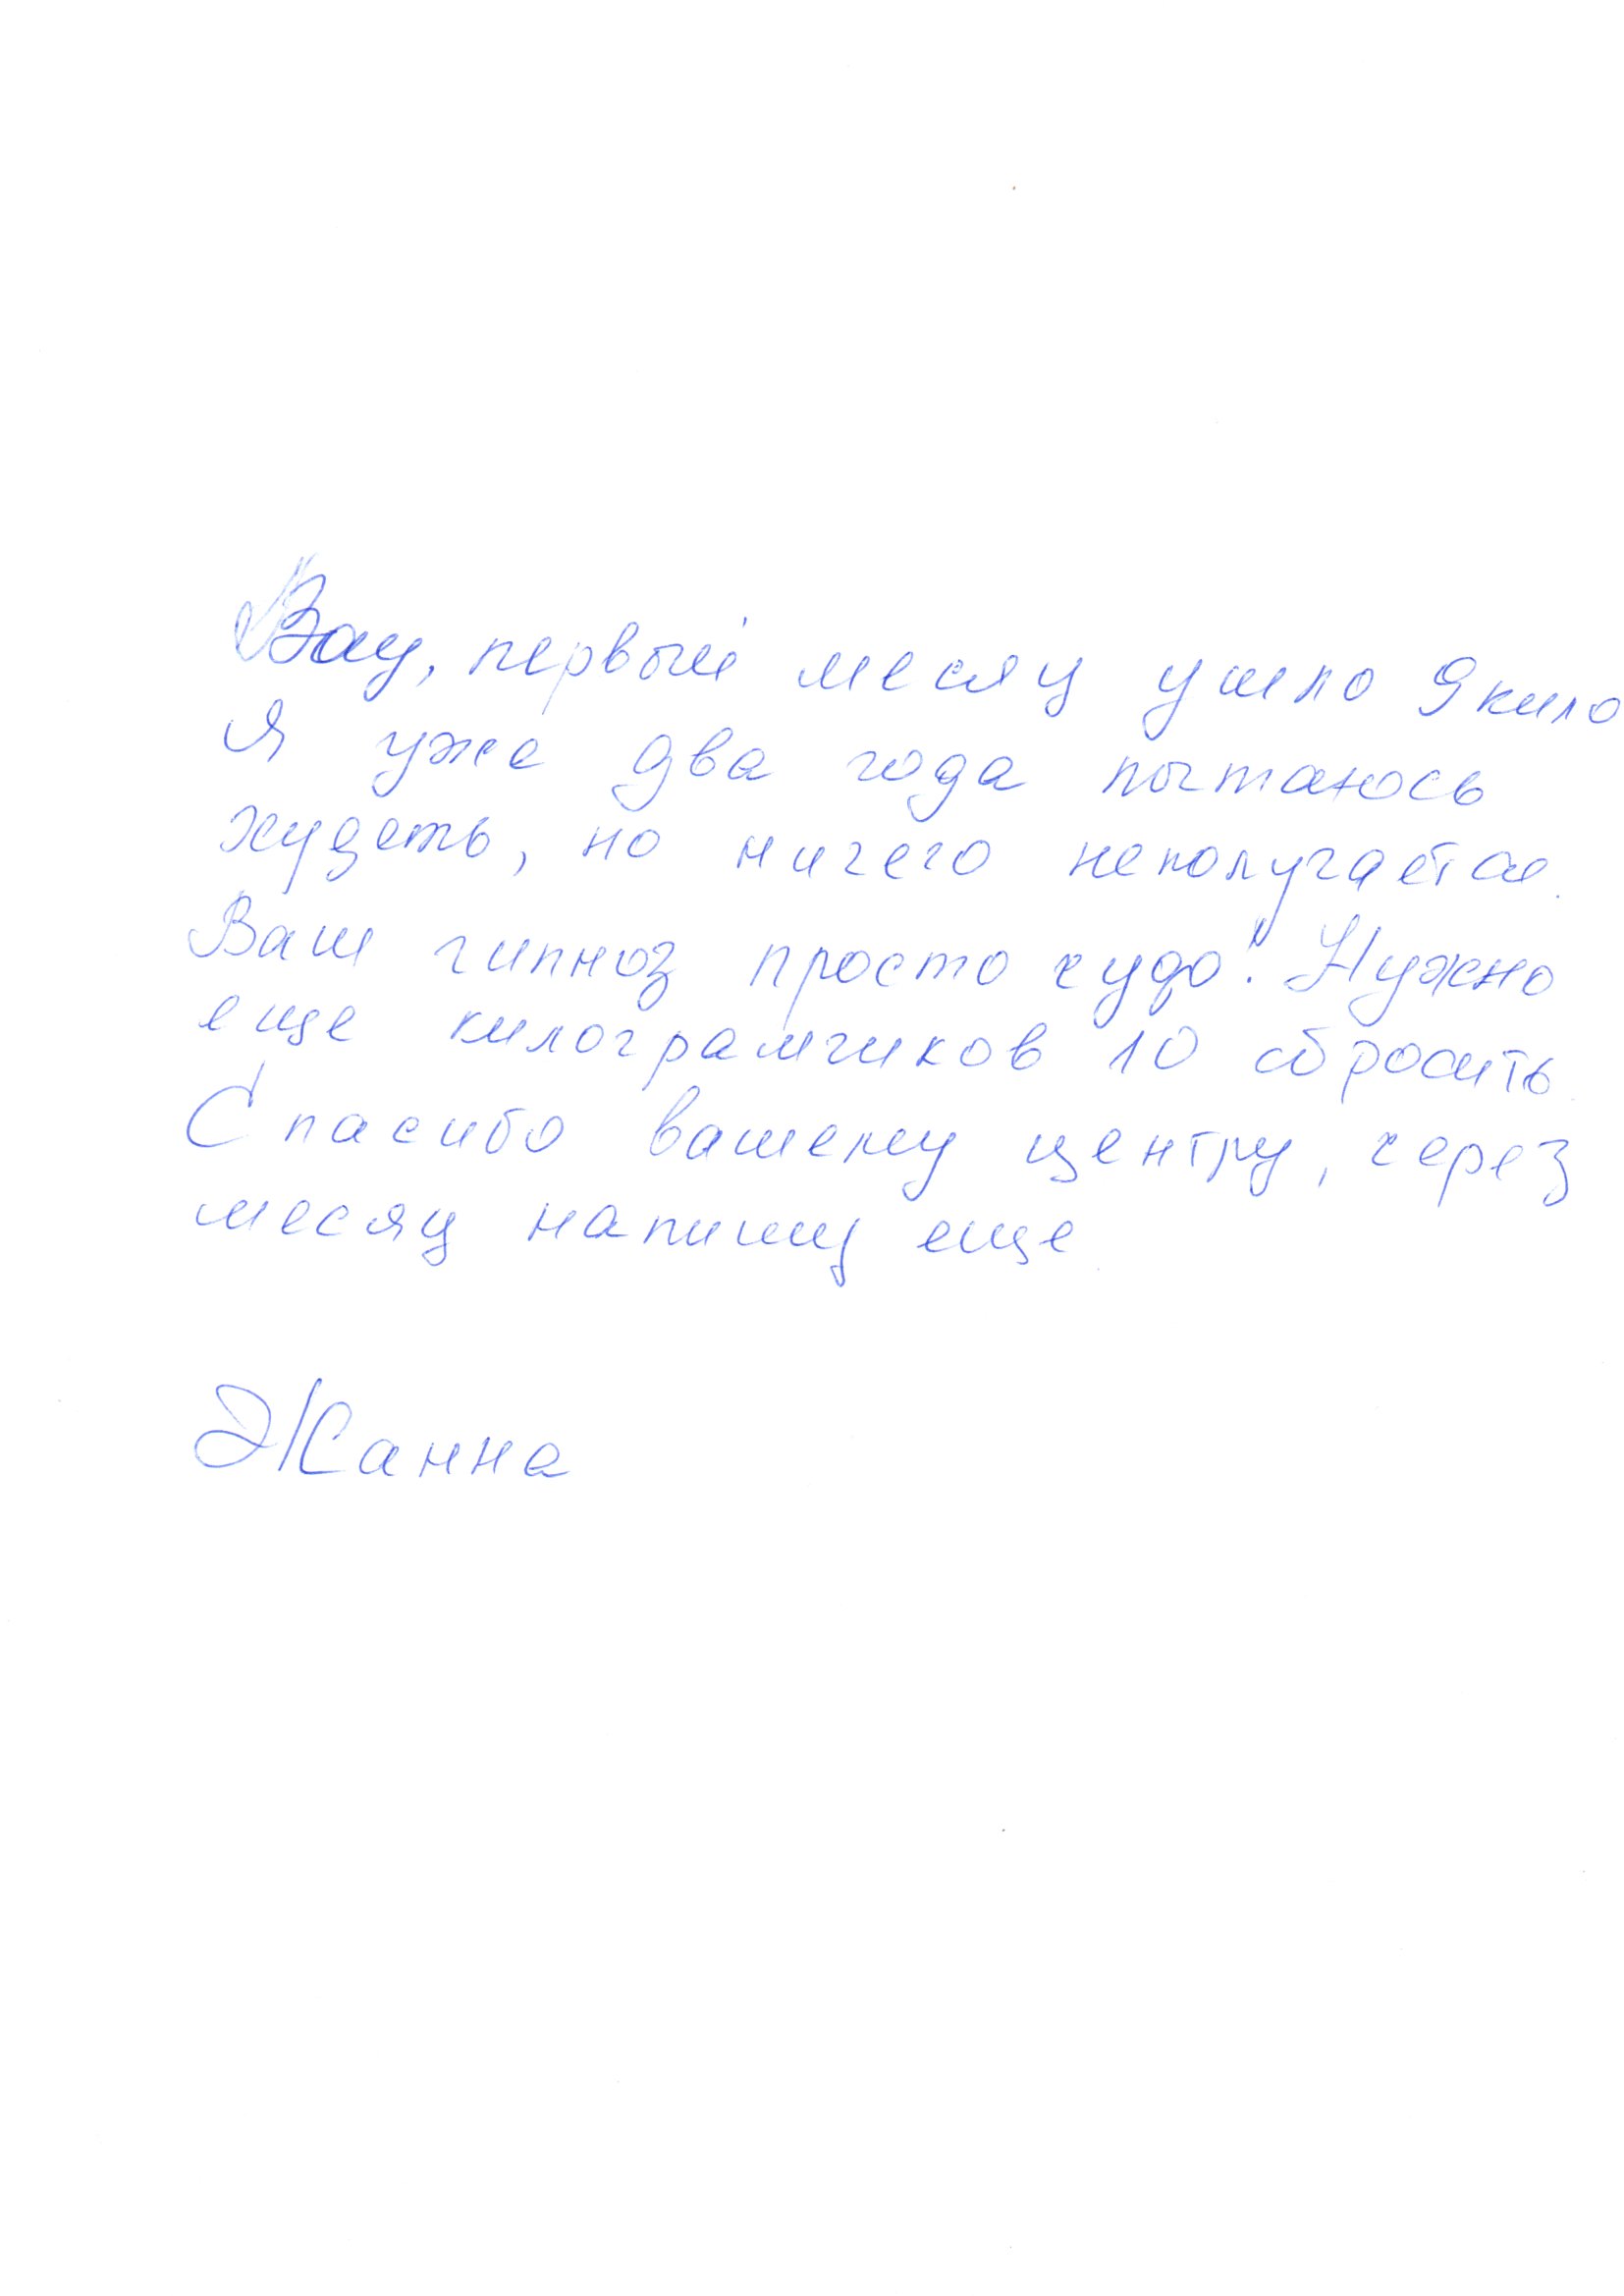 Вау, первый месяц ушло 9 кило
Я уже два года пытаюсь
худеть, но ничего неполучается.
Ваш гипноз просто чудо! Нужно
еще килограмчиков 10 сбросить.
Спасибо вашему центру, через
месяц напишу еще.
Жанна